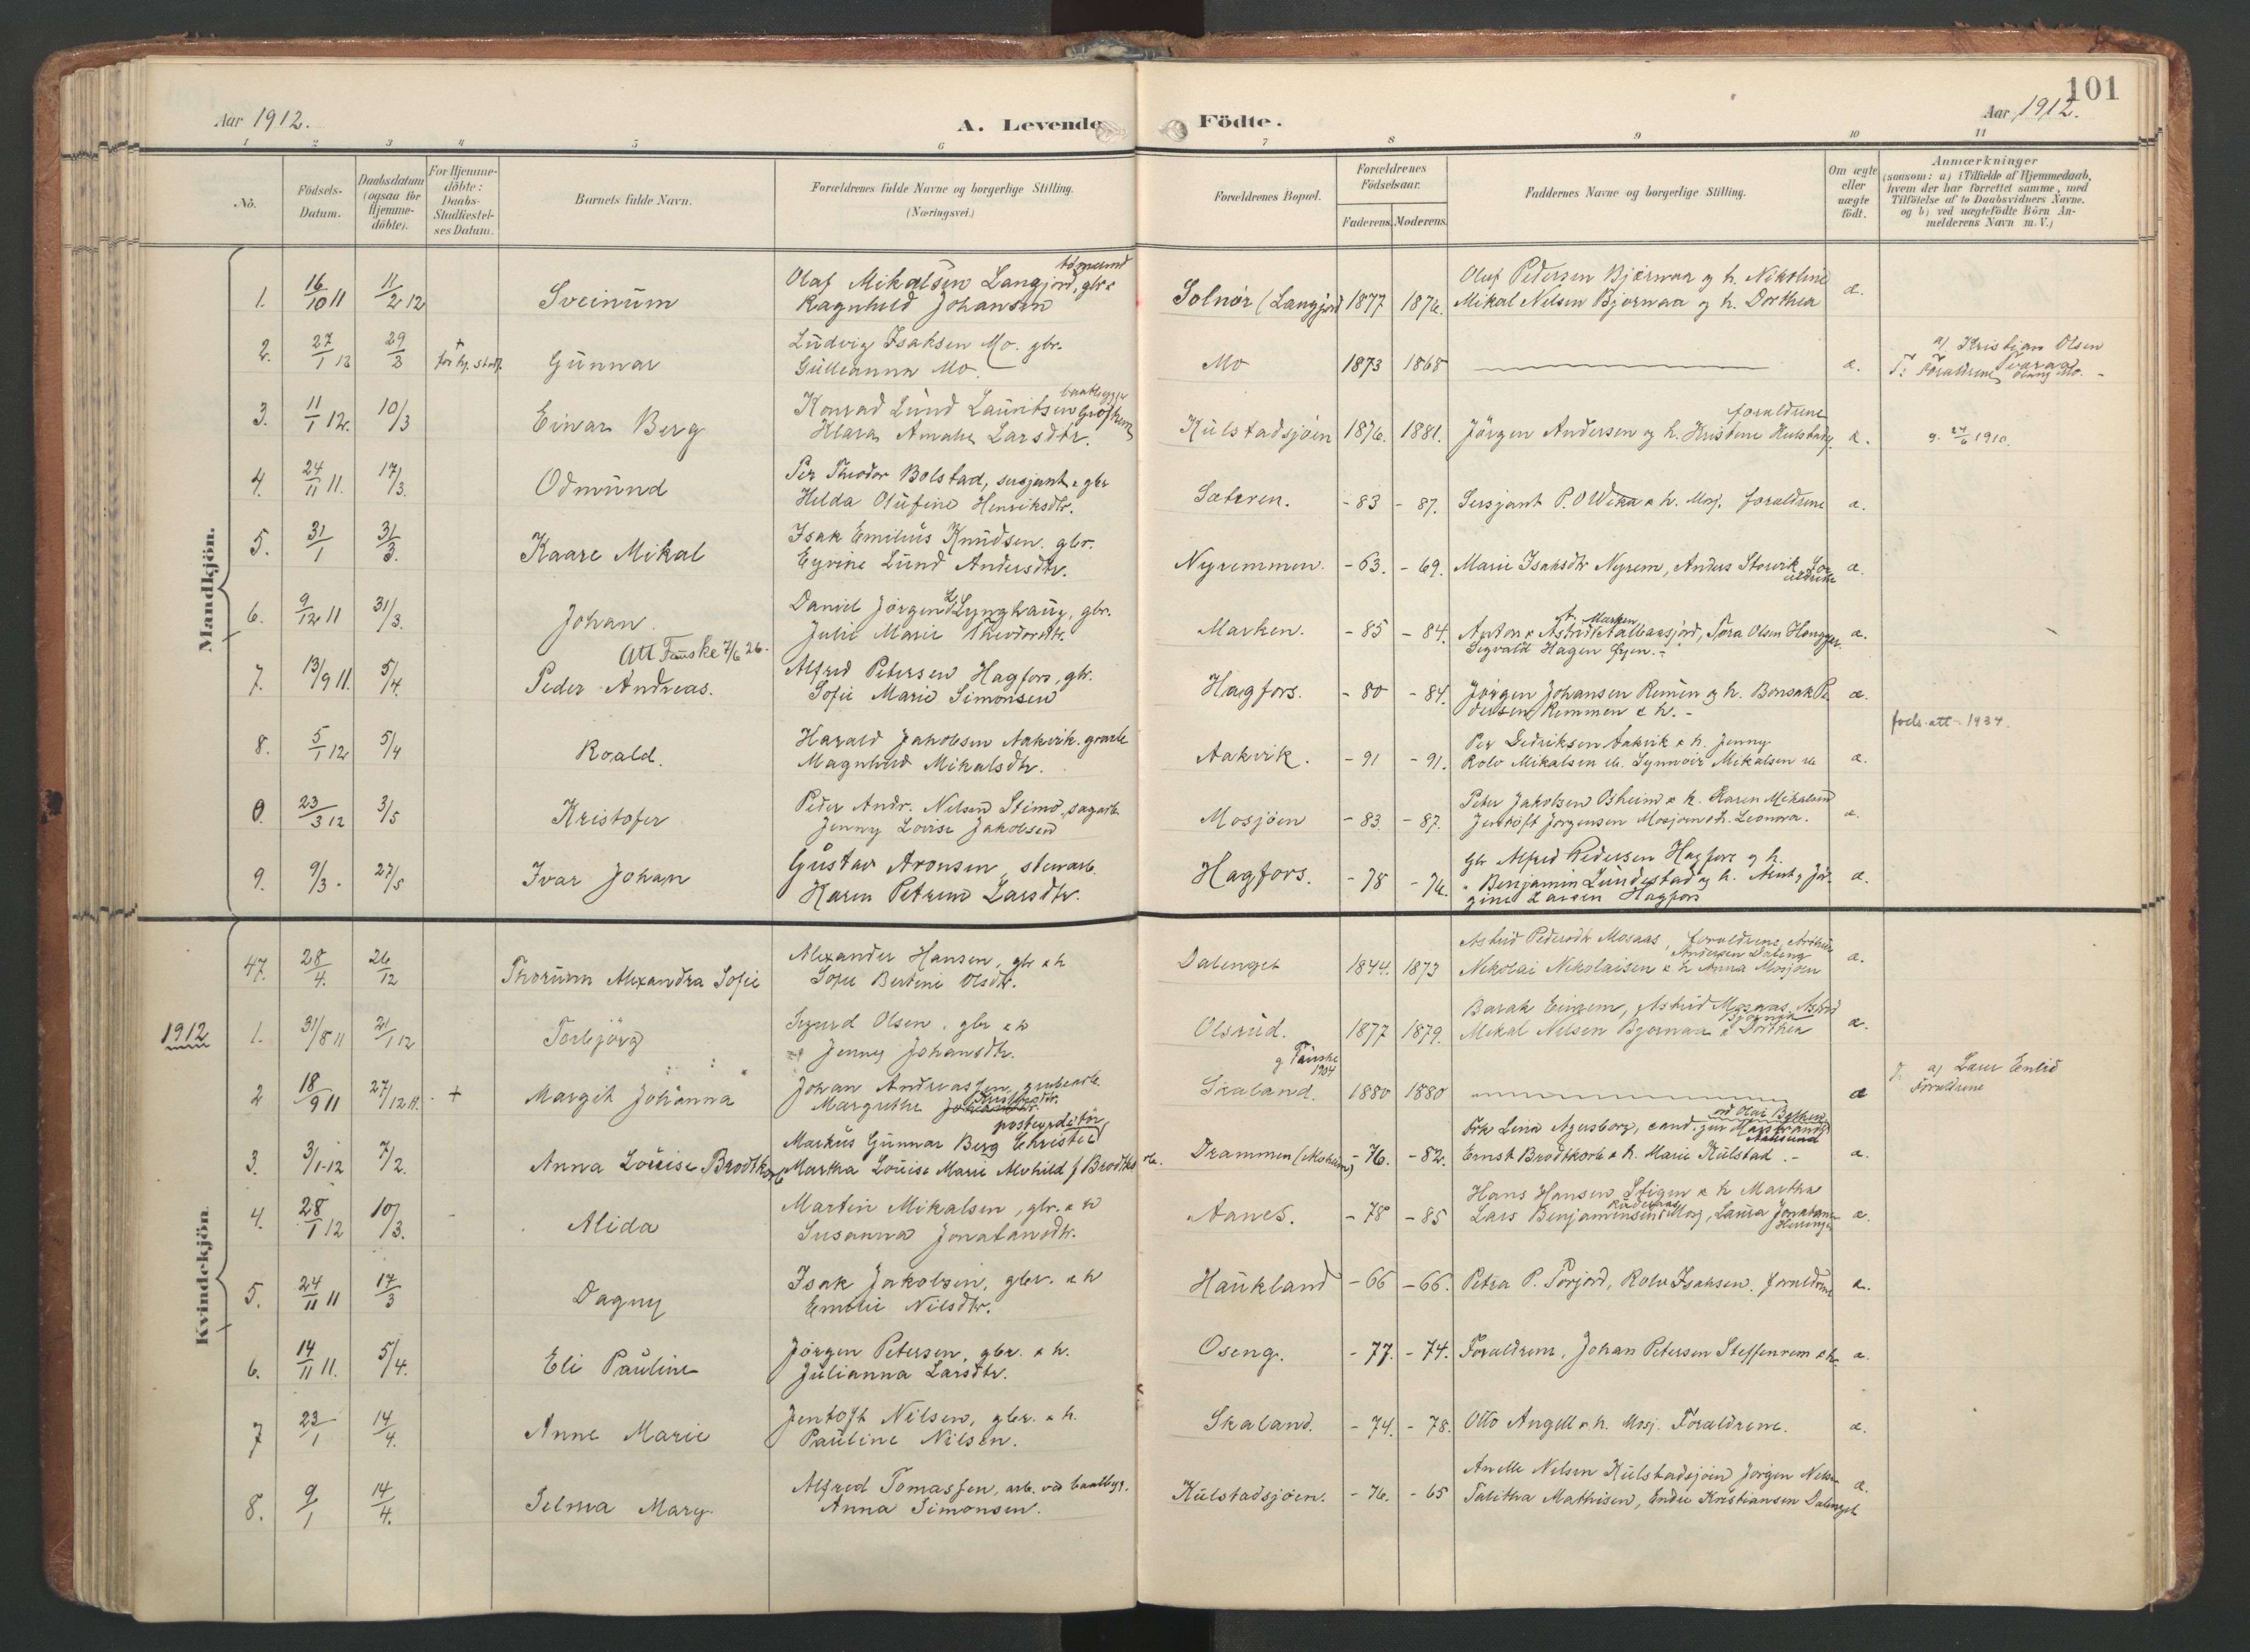 101
Aar 1912.
A. Levende Födte.
Aar 1912.
1 2 3 4 5 6 7 8 9 10 11
No.
Födsels-Datum.
Daabsdatum (ogsaa for Hjemme-döbte).
For Hjemme-döbte: Daabs-Stadfæstel-ses Datum.
Barnets fulde Navn.
Forældrenes fulde Navne og borgerlige Stilling. (Næringsvei.)
Forældrenes Bopæl.
Forældrenes Födselsaar.
Faderens. Moderens.
Faddernes Navne og borgerlige Stilling.
Om ægte eller uægte födt.
Anmærkninger
(saasom: a) i Tilfælde af Hjemmedaab,
hvem der har forrettet samme, med
Tilföielse af to Daabsvidners Navne.
og b) ved uægtefödte Börn An-
melderens Navn m. V.)
Mandkjön.
1. 16/10 11 11/2 12 Sveinum Olaf Mikalsen Langjord, gbr Solnör (Langjord 1877 1876. Oluf Pedersen Bjørnaa og h. Nikoline æ.
Ragnhild Johansen Mikal Nilsen Bjørnaa og h. Dorthea
2. 27/1 12 29/3 + Gunnar Ludvig Isaksen Mo. gbr. Mo 1873 1868 æ. a) Kristian Olsen
Mo. T: Forældrene
3. 11/1 12. 10/3 Einar Berg Konrad Lund Lauritsen baatbygger Kulstadsjøen 1876. 1881. Jörgen Andersen og h. Kristine forældrene æ. g. 24/6 1910.
Klara Amalie Larsdtr.
4. 24/11 11. 17/3. Odmund Per Theodor Bolstad, sersjant & gbr Sæteren. - 83 - 87. Sersjant P. O Wika & h. Mosj. forældrene æ.
Helda Olufine Henriksdtr.
5. 31/1 31/3. Kaare Mikal Isak Emilius Knudsen. gbr. Nyremmen. - 63. - 69. Marie Isaksdtr Nyrem, Anders Storvik, Forældrene æ.
Lund Andersdtr.
6. 9/12 11 31/3. Johan. Daniel Jørgen Lynghaug, gbr. Marken. - 85 - 84. Anton & Tora Olsen æ.
Julie Marie Theodorsdtr. Sigvald Hagen Öyen.
Utt Fauske 7/6 26.
7. 13/9 11. 5/4. Peder Andreas. Alfred Petersen Hagfors, gbr. Hagfors. - 80 - 84. Jörgen Johansen Remen og h. Bonsak Pe- æ.
Sofie Marie Simonsen dersen Remmen & h. -
föds.att - 1934.
8. 5/1 12 5/4 Roald. Harald Jakobsen Aakvik. Aakvik. - 91 - 91. Per Aakvik & h. Jenny æ.
Magnhild Mikalsdtr. Rolv Mikalsen Mikalsen
0. 23/3 12 3/5 Kristofer Peder Andr. Nilsen Stimo, sagarb. Mosjöen - 83 - 87. Peter Jakobsen Osheim & h. Karen Mikalsen æ.
Jenny Lovise Jakobsen Jentoft Jörgensen Mosjøen & h. Leonora.
9. 9/3. 27/5 Ivar Johan Gustav Aronsen, stenarb. Hagfors. - 78 - 76. Gbr Alfred Pedersen Hagfors og h. æ.
Karen Petrine Larsdtr. " Benjamin Lundestad og h. Arnt & Jör-
gine Larsen Hagfors
Kvindekjön.
47. 28/4. 26/12 Thorunn Alexandra Sofie Alexander Hansen, gbr & h Dalenget 1844. 1873 Astrid Pedersdtr Mosaas, forældrene, æ.
Sofie Bertine Olsdtr. Nikolai Nikolaisen & h Anna Mosjøen
1912
1. 31/8 11 21/1 12 Torbjörg Sigurd Olsen, gbr & h Olsrud. 1877 1879. Barak Astrid Mosaas, æ.
Jenny Johansdtr. Mikal Nilsen Bjørnaa & Dorthea
g Fauske 1904
2 18/9 11 27/12 11. + Margit Johanna Johan Andreassen, grubearb. Skaland. 1880 1880 æ a) Laur Enlid
Margrethe T. Forældrene
3. 3/1-12 7/2. Anna Lovise Brodtkorb Markus Gunnar Berg Christie posteksp. Drammen (Mosheim) - 76. - 82. Frk Lina Agersborg, cand. jur æ.
Martha Lovise Marie Alvhild f Brodtkorb. Ernst Brodtkorb & h. Marie Kulstad. -
4. 28/1 12 10/3. Alida Martin Mikalsen, gbr. & h Aanes. - 78 - 85 Hans Hansen Stigen & h Martha æ.
Susanna Jonatansdtr. Lars Benjaminsen Mosj, Laura Jonatansen
5. 24/11 11 17/3 Dagny Isak Jakobsen, gbr. & h Haukland - 66 - 66. Petra P. Forjord, Rolv Isaksen. forældrene æ.
Emilie Nilsdtr.
6. 14/11 11. 5/4. Eli Pauline Jörgen Petersen, gbr. & h. Oseng. - 77. - 74. Forældrene, Johan Petersen Steffenrem & h. æ.
Julianna Larsdtr.
7 23/1 14/4. Anne Marie Jentoft Nilsen, gbr. & h. Skaland. - 74. - 78. Otto Angell & h. Mosj. Forældrene. æ.
Pauline Nilsen.
8. 9/1 14/4. Selma Mary. Alfred Tomassen, arb. ved baatbygg. Kulstadsjøen. - 76. - 65 Anelle Nilsen Kulstadsjøen Jørgen Nilsen æ.
Anna Simonsen. Talitha Mathisen, Endre Kristiansen Dalenget